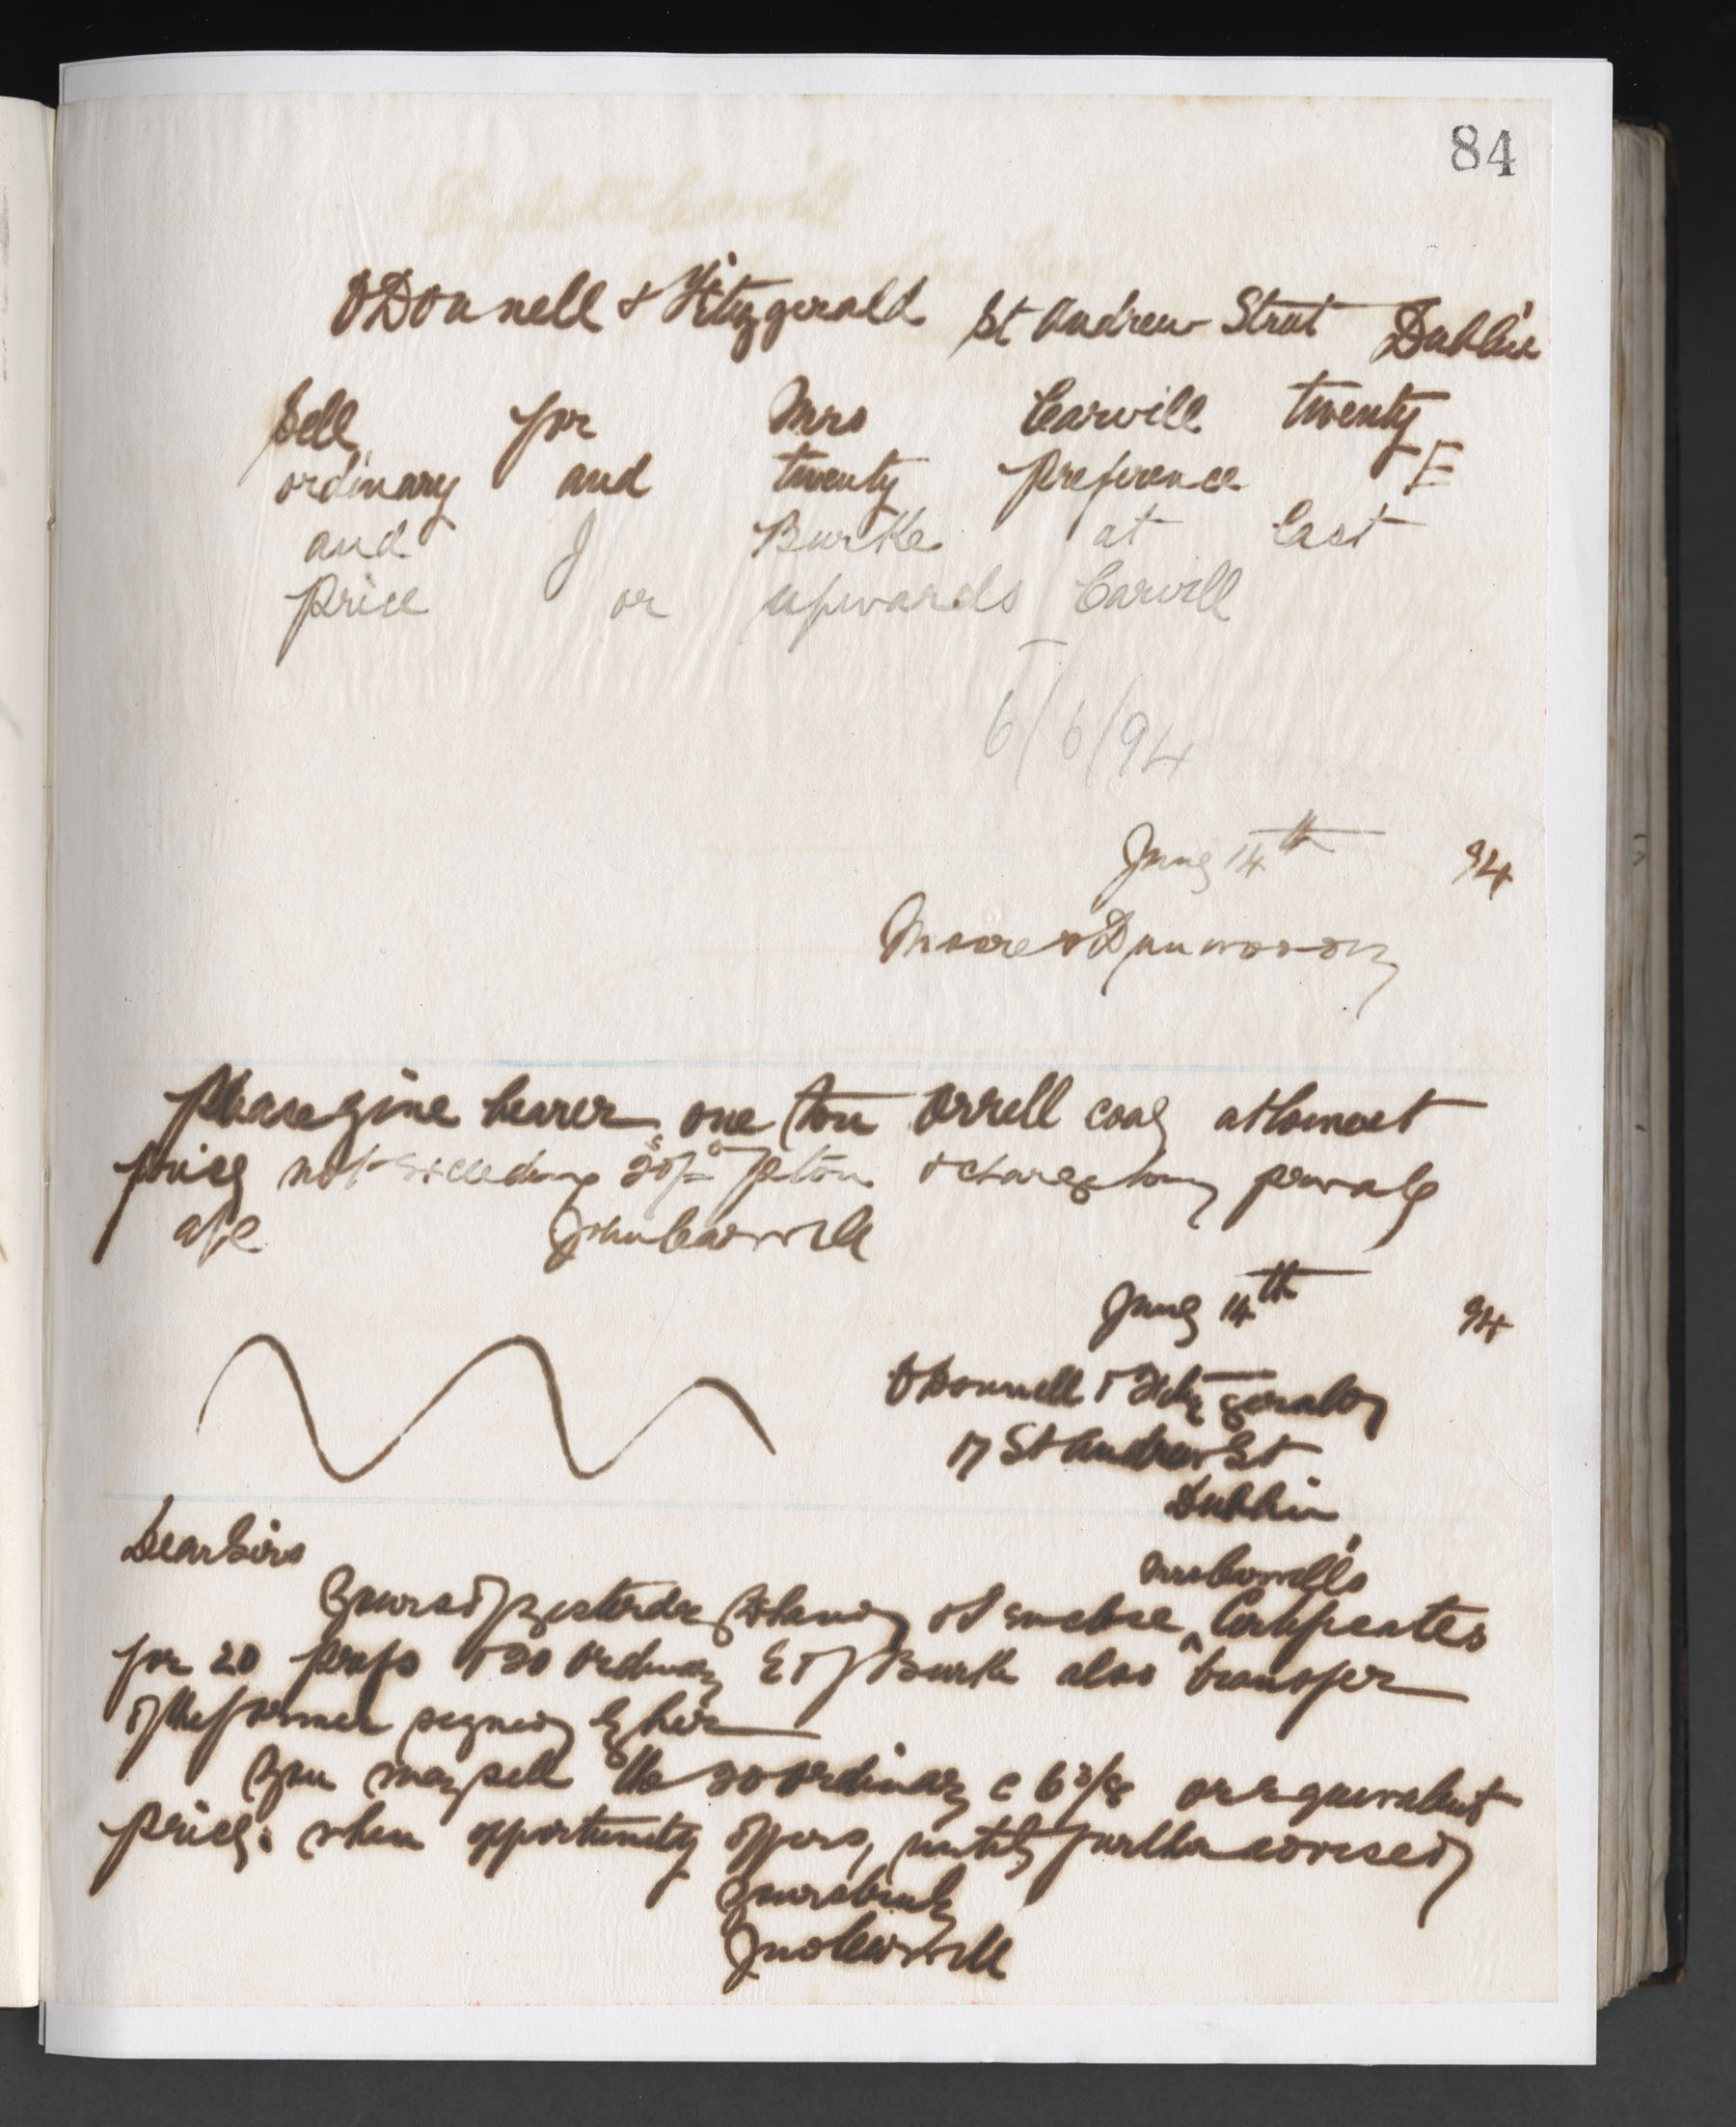 84
O'Donnell & Fitzgerald St Andrew Street Dublin
Sell for Mrs Carvill twenty
ordinary and twenty preference E
and J Burke at last
price or upwards Carvill
6/6/94
June 14th 94
Moore & Dunwoody
Please give bearer one ton Orrell coal at lowest
price not exceeding 20s/- p ton & charge to my private
a/c John Carvill
June 14th 94
O'Donnell & Fitzgerald
17 St Andrew St
Dublin
Dear Sirs
Mrs Carvill's
Yours of yesterday to hand & I enclose ^ Certificates
for 20 prefs & 20 ordinary E & J Burke also transfer
of the former signed by her
You may sell the 20 ordinary @ 6 3/8 or equivalent
price. when opportunity offers, until further advised
Yours truly
Jno Carvill